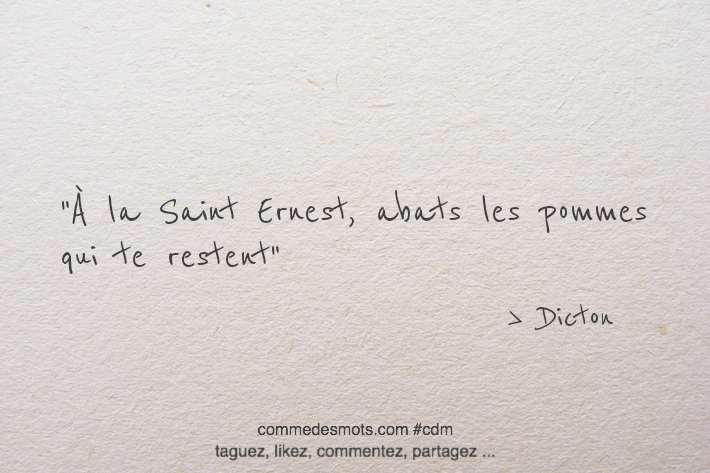 "À la Saint Ernest, abats les pommes
qui te restent"
> Dicton
commedesmots.com #cdm
taguez, likez, commentez, partagez ...